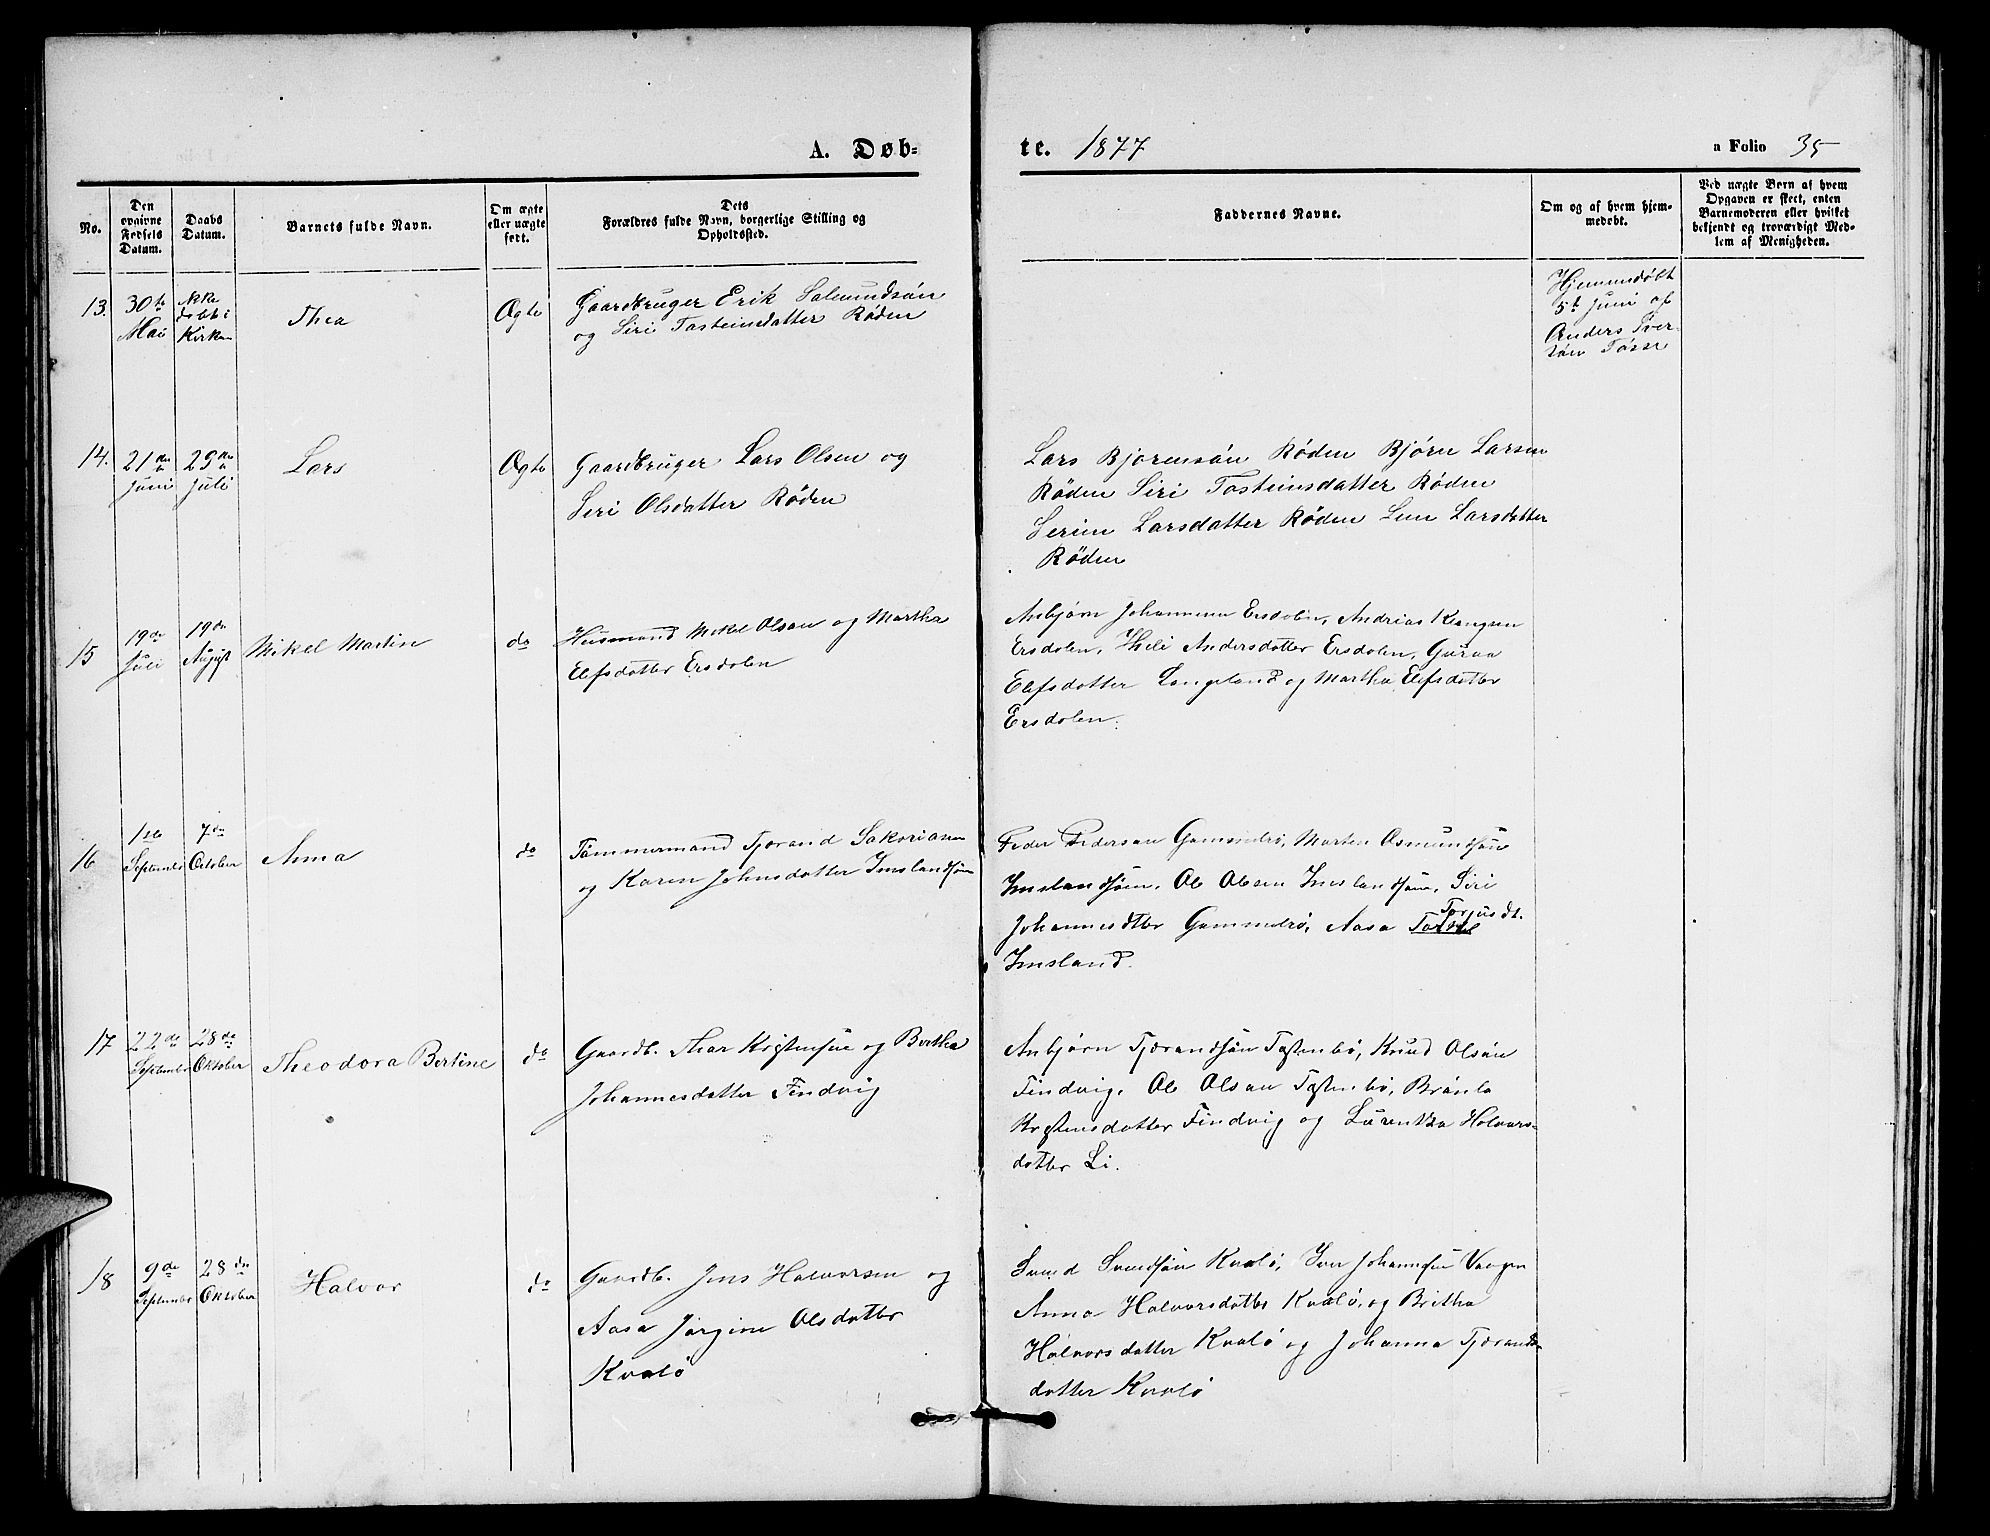 A. Døb-
te. 1877
a Folio 35
No.
Den opgivne Fødsels Datum.
Daabs Datum.
Barnets fulde Navn.
Om ægte eller uægte født.
Dets
Forældres fulde Navn, borgerlige Stilling og
Opholdssted.
Faddernes Navne.
Om og af hvem hjem-
medøbt.
Ved uægte Børn af hvem
Opgaven er skeet, enten
Barnemoderen eller hvilket
bekjendt og troværdigt Med-
lem af Menigheden.
13.
30te
Mai
Ikke
døbt i
Kirken
Thea
Ægte
Gaardbruger Erik Salmundsøn
og Siri Tasteinsdatter Røden
Hjemmedøbt
5t Juni af
Anders Iver-
søn Tøsse
14.
21de
Juni
29de
Juli
Lars
Ægte
Gaardbruger Lars Olsen og
Seri Olsdatter Røden
Lars Bjørensøn Røden Bjørn Larsen
Røden Siri Tasteinsdatter Røden
Serine Larsdatter Røden Lene Larsdatter
Røden
15
19de
Juli
19de
August
Mikel Martin
do
Husmand Mikel Olsen og Martha
Elefsdatter Ersdalen
Ersdalen, Andersdatter Ersdalen, Guroa
Elefsdatter Langeland og Martha Elefsdatter
Ersdalen.
16
1ste
September
7de
October
Anna
do
Tømmermand Tjærand Sakariasen
og Karen Johnsdatter Imslandsjøen
Peder Pedersen Gammelrø, Marten Osmundsøn
Imslandsjøen, Ole Olsen Imslandsjøen, Siri
Johannesdtter Gammelrø, Aasa Torjusdt.
Imsland.
17
22de
September
28de
Oktober
Theodora Bertine
do
Gaardb. Thor Kristensen og Bertha
Johannesdatter Findvig
Anbjørn Tjærandsøn Tastenbø, Knud Olsøn
Findvig, Ole Olsen Tastenbø, Brønla
Kristensdatter Findvig og Lurentza Halvors-
datter Li.
18
9de
September
28de
Oktober
Halvor
do
Gaardb. Jens Halvorsen og
Aasa Jørgine Olsdatter
Kvalø
Svend Svendsøn Kvalø, Iver Johannesen Vaagen
Anna Halvorsdatter Kvalø, og Britha
Halvorsdatter Kvalø og Johanna Tjærands-
datter Kvalø